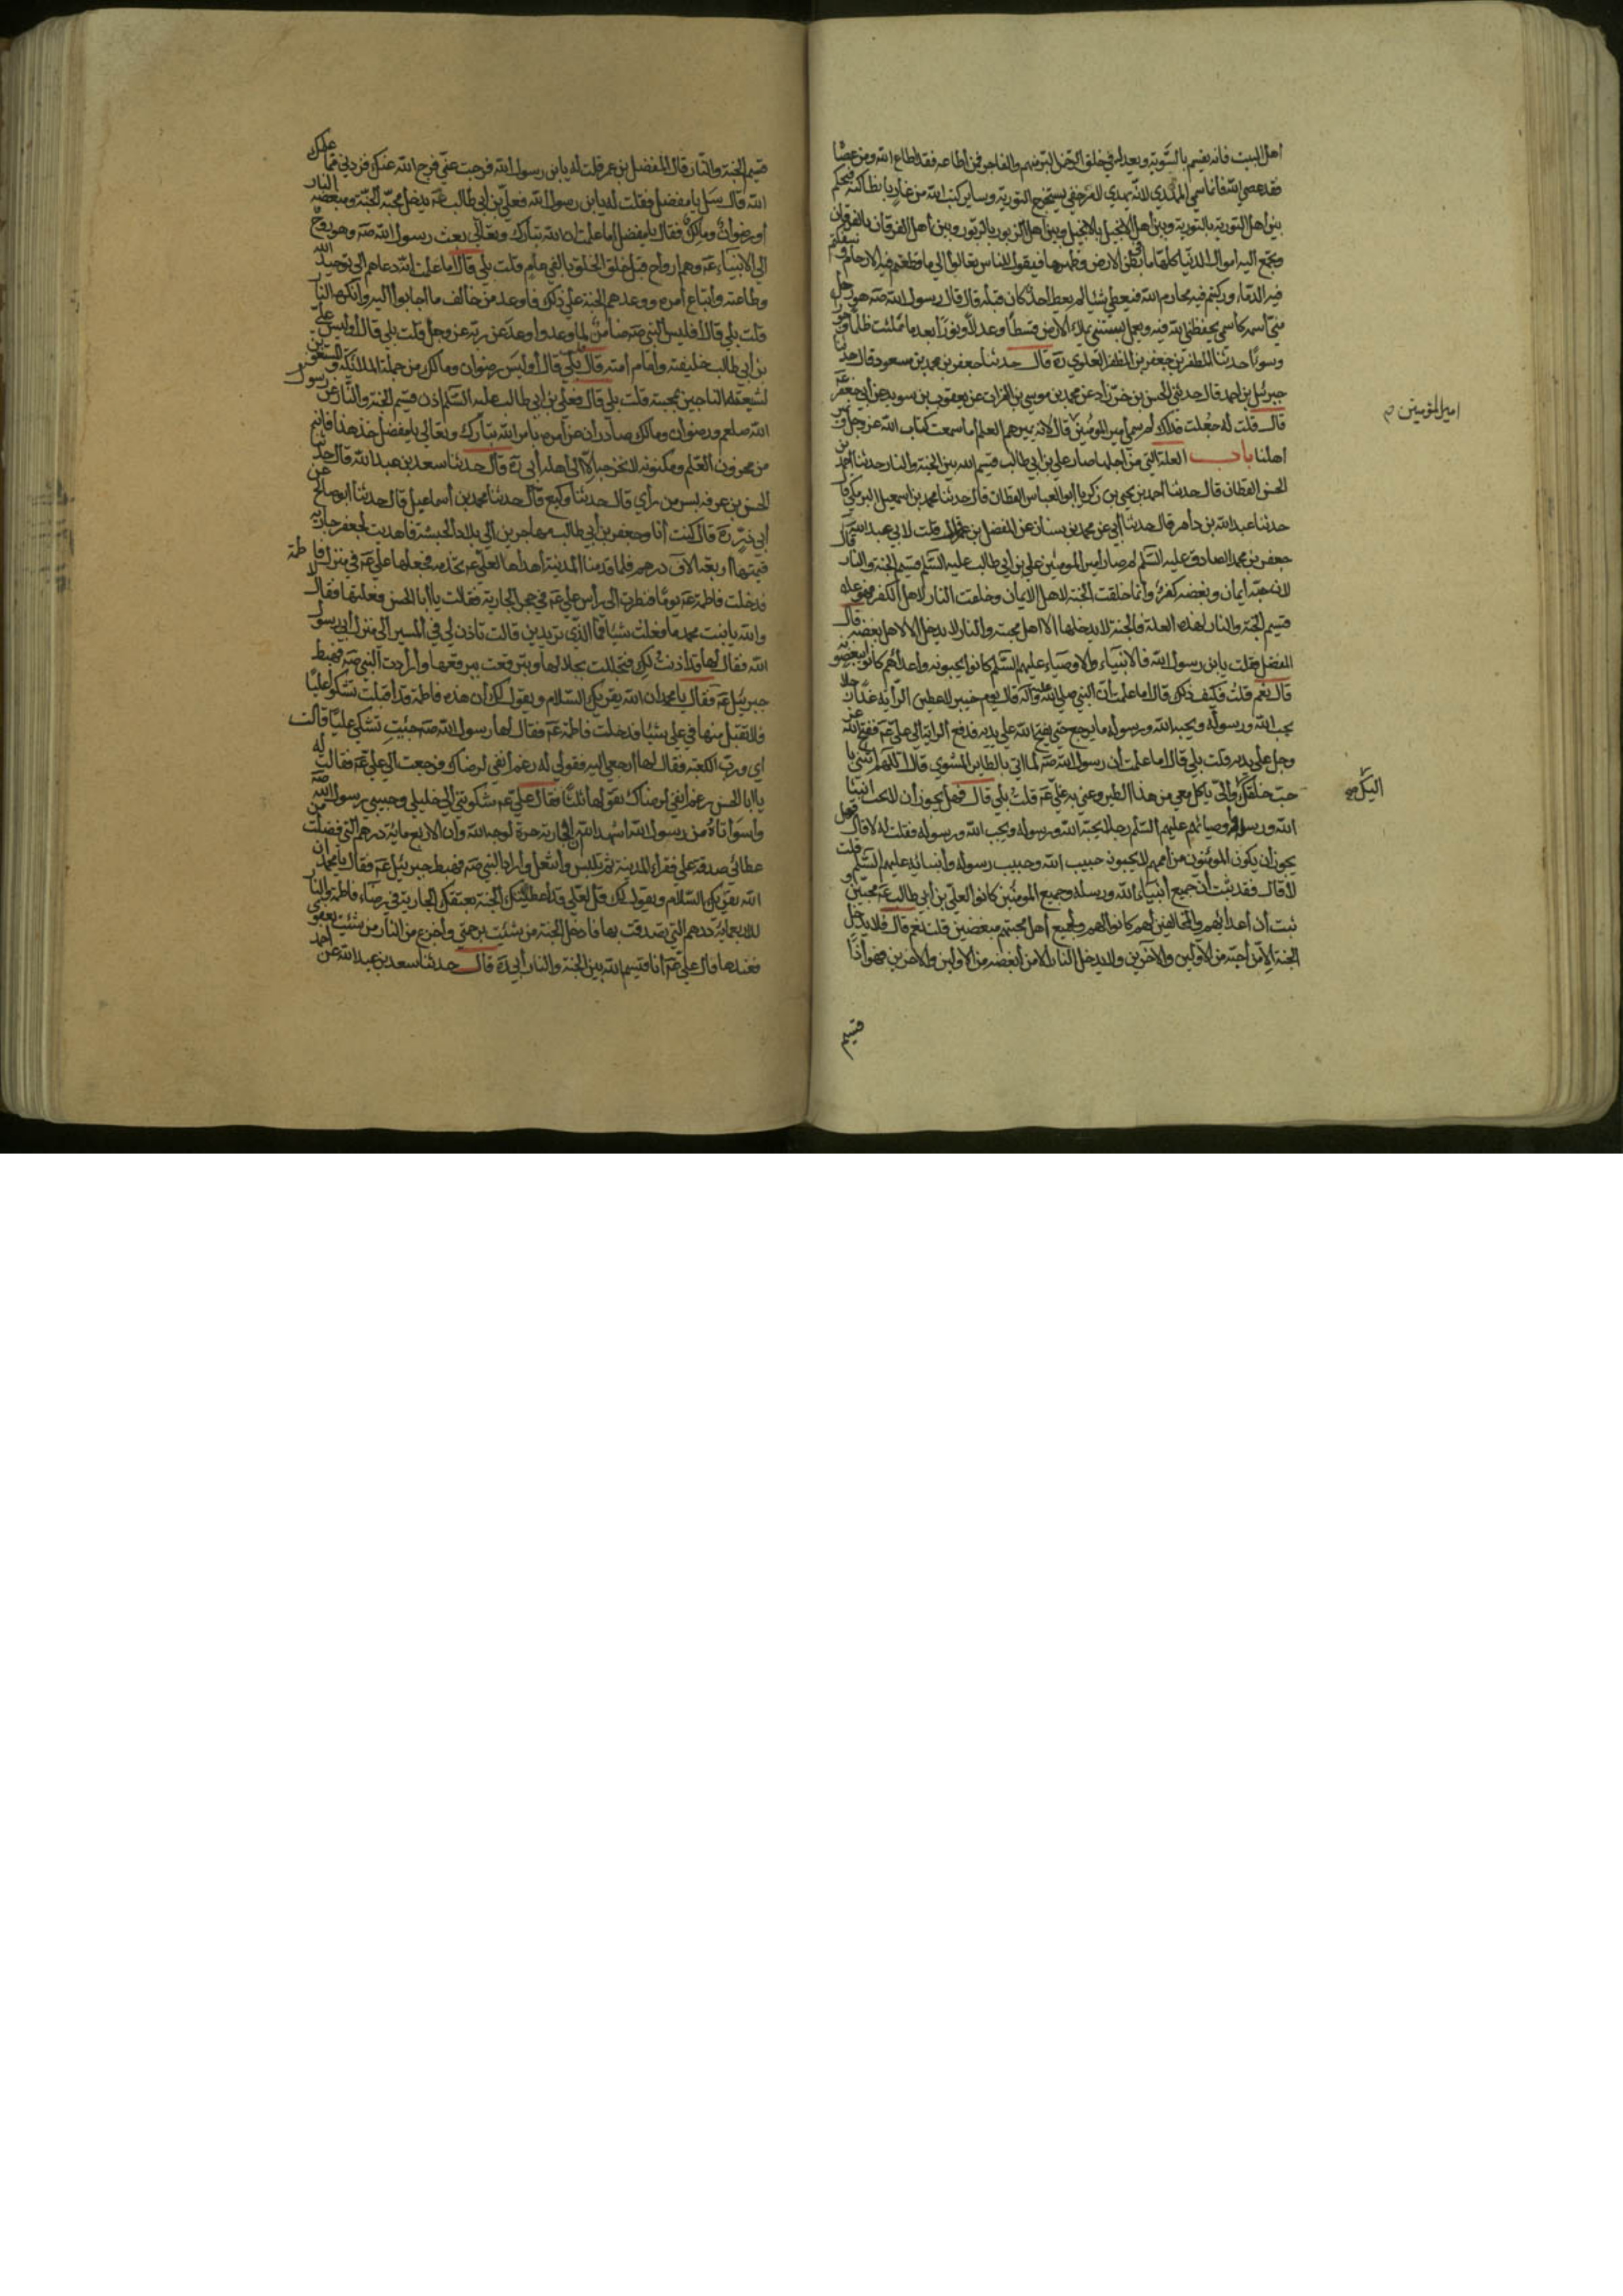 اهل البيت فانه يقسم بالسّوية ويعدل في خلق الرّحمن البرّ منهم والفاجر فمن أطاعه فقد أطاع الله ومن عصا
فقد عصى الله فانما سمي المهدي لانّه يهدي لامر خفي يستخرج التورية وساير كتب الله من غار بانطاكية فيحكم
بين أهل التورية بالتورية وبين أهل الانجيل بالانجيل وبين أهل الزبور بالزبور وبين أهل الفرقان بالفرقان
وتجمع اليه اموال الدنيا كلّها ما في بطن الارض وظهرها فيقول للناس تعالوا الى ما قطعتم فيه الارحام وسفكتم
فيه الدّماء وركبتم فيه محارم الله فيعطي شيئا لم يعط احد كان قبله قال قال رسول الله صَه هو رجل
منّي اسمه كاسمي يحفظني الله فيه ويعمل بسنتي يملاء الارض قسطا وعدلا ونورًا بعد ما تملئت ظلما وجورا
وسوءًا حدثنا المظفر بن جعفر بن المظفر العلوي رَه قال حدثنا جعفر بن محمد بن مسعود قال حدثنا
جبرئيل بن احمد قال حدثني الحسن بن خرّزاد عن محمد بن موسى بن الفرات عن يعقوب بن سويد عن ابي جعفر عَه
قال قلت له جعلت فداك لم سمي أمير المؤمنين قال لانه يميرهم العلم اما سمعت كتاب الله عز وجل ونمير
اهلنا باب العلة التي من أجلها صار علي بن ابي طالب قسيم الله بين الجنة والنار حدثنا احمد بن
الحسن القطان قال حدثنا احمد بن يحيى بن زكريا ابو العباس القطان قال حدثنا محمد بن اسمعيل البرمكي قا
حدثنا عبد الله بن داهر قال حدثنا أبي عن محمد بن سنان عن المفضل بن عمر قال قلت لابي عبد الله
جعفر بن محمد الصادق عليه السّلم لم صار أمير المومنين علي بن أبي طالب عليه السّلم قسيم الجنة والنار قال
لان حبّه أيمان وبغضه كفر وأنما خلقت الجنة لاهل الايمان وخلقت النار لاهل الكفر فهو عليه
قسيم الجنة والنار لهذه العلة فالجنة لا يدخلها الا اهل محبته والنار لا يدخلها الا اهل بغضه قال
المفضل فقلت يابن رسول الله فالانبياء والاوصياء عليهم السّلم كانوا يحبونه واعداؤهم كانوا يبغضونه
قال نعم قلت فكيف ذلك قال اما علمت أن النبي صلى الله عليه وآله قال يوم خيبر لاعطين الرّاية غدًا رجلا
يحب الله ورسوله ويحبه الله ورسوله ما يرجع حتى يفتح الله على يديه فدفع الراية الى علي عَه ففتح الله عز
وجل على يديه قلت بلى قال اما علمت أن رسول الله صَه لما اتي بالطاير المشوي قال اللهم ائتني با
حبّ خلقك اليك والىّ ياكل معي من هذا الطير وعني به علي عَه قلت بلى قال فهل يجوز أن لا يحب انبيا
الله ورسله وأوصيائهم عليهم السّلم رجلا يحبّه الله ورسوله ويحب الله ورسوله فقلت له لا قال فهل
يجوز أن يكون المومنون من أممهم لا يحبون حبيب الله وحبيب رسوله وأنبيائه عليهم السّلم قلت
لا قال فقد ثبت أن جميع أنبياء الله ورسله وجميع المومنين كانوا لعلي بن أبي طالب عَه محبّين و
ثبت أن أعدائهم والمخالفين لهم كانوا لهم ولجميع أهل محبتهم مبغضين قلت نعم قال فلا يدخل
الجنة الا من أحبّه من الاولين والاخرين ولا يدخل النار الا من أبغضه من الاولين والاخرين فهو أذًا
قسيم
امير المومنين م
اليك صح
قسيم الجنة والنّار قال المفضل بن عمر قلت له يابن رسول الله فرجت عنّي فرج الله عنك فزدني مما علمك
الله قال سَل يا مفضل فقلت له يابن رسول الله فعلي بن ابي طالب عَه يدخل محبّه الجنّة ومبغضه النار
أو رضوان ومالك فقال يا مفضل اما علمت ان الله تبارك وتعالى بعث رسول الله صَه وهو روح
الى الانبياء عَه وهم أرواح قبل خلق الخلق بالفي عام قلت بلى قال اما علمت انّه دعاهم الى توحيد الله
وطاعته وأتباع أمره ووعدهم الجنة على ذلك وأوعد من خالف ما اجابوا اليه وأنكره النار
قلت بلى قال أفليس النبي صَه ضامن لما وعد وأوعد عن ربه عز وجل قلت بلى قال أوليس علي
بن أبي طالب خليفته وأمام أمته قال بلى قال أوليس رضوان ومالك من جملة الملائكة والمستغفرين
لشيعته الناجين بمحبته قلت بلى قال فعلي بن ابي طالب عليه السّلم اذن قسيم الجنة والنّار عن رسول
الله صلعم ورضوان ومالك صادران عن أمره بأمر الله تبارك وتعالى يا مفضل خذ هذا فانه
من مخزون العلم ومكنونه لا تخرجه الّا الى اهله أبي رَه قال حدثنا سعد بن عبد الله قال حدثنا
الحسن بن عرفه بسر من رأي قال حدثنا وكيع قال حدثنا محمد بن أسرائيل قال حدثنا ابو صالح عن
أبي ذرّ رَه قال كنت أنا وجعفر بن أبي طالب مهاجرين الى بلاد الحبشة فاهديت لجعفر جارية
قيمتها اربعة الاف درهم فلما قدمنا المدينة أهداها لعلي عَه تخدمه فجعلها علي عَه في منزل فاطمة
فدخلت فاطمة عَه يومًا فنظرت الى رأس علي عَه في حجر الجارية فقالت يا أبا الحسن فعلتها فقال لا
والله يا بنت محمد ما فعلت شيئا فما الذي تريدين قالت تاذن لي في المسير الى منزل أبي رسول
الله فقال لها قد أذنت لك فتجللت بجلالها وتبرقعت ببرقعها وأرادت النبي صَه فهبط
جبرئيل عَه فقال يا محمد ان الله يقرئك السّلام ويقول لك أن هذه فاطمة قد أقبلت تشكو عليّا
فلا تقبل منها في علي شيئا فدخلت فاطمة عَه فقال لها رسول الله صَه جئت تشكين عليّا قالت
اي ورب الكعبة فقال لها أرجعي اليه فقولي له رغم أنفي لرضاك فرجعت الى علي عَه فقالت له
يا ابا الحسن رغم أنفي لرضاك تقولها ثلثا فقال علي عَه شكوتني الى خليلي وحبيبي رسول الله صَه
واسوأتاه من رسول الله اشهد الله أن الجارية حرة لوجه الله وأن الاربعمائة درهم التي فضلت من
عطائي صدقة على فقراء المدينة ثم تلبس وأنتعل وأراد النبي صَه فهبط جبرئيل عَه فقال يا محمد ان
الله يقرئك السّلام ويقول لك قل لعلي قد أعطيتك الجنة بعتقك الجارية في رضاء فاطمة والنار
بالاربعماية درهم التي تصدقت بها فادخل الجنة من شئت برحمتي وأخرج من النار من شئت بعفوي
فعندها قال علي عَه أنا قسيم الله بين الجنة والنار أبي رَه قال حدثنا سعد بن عبد الله عن أحمد